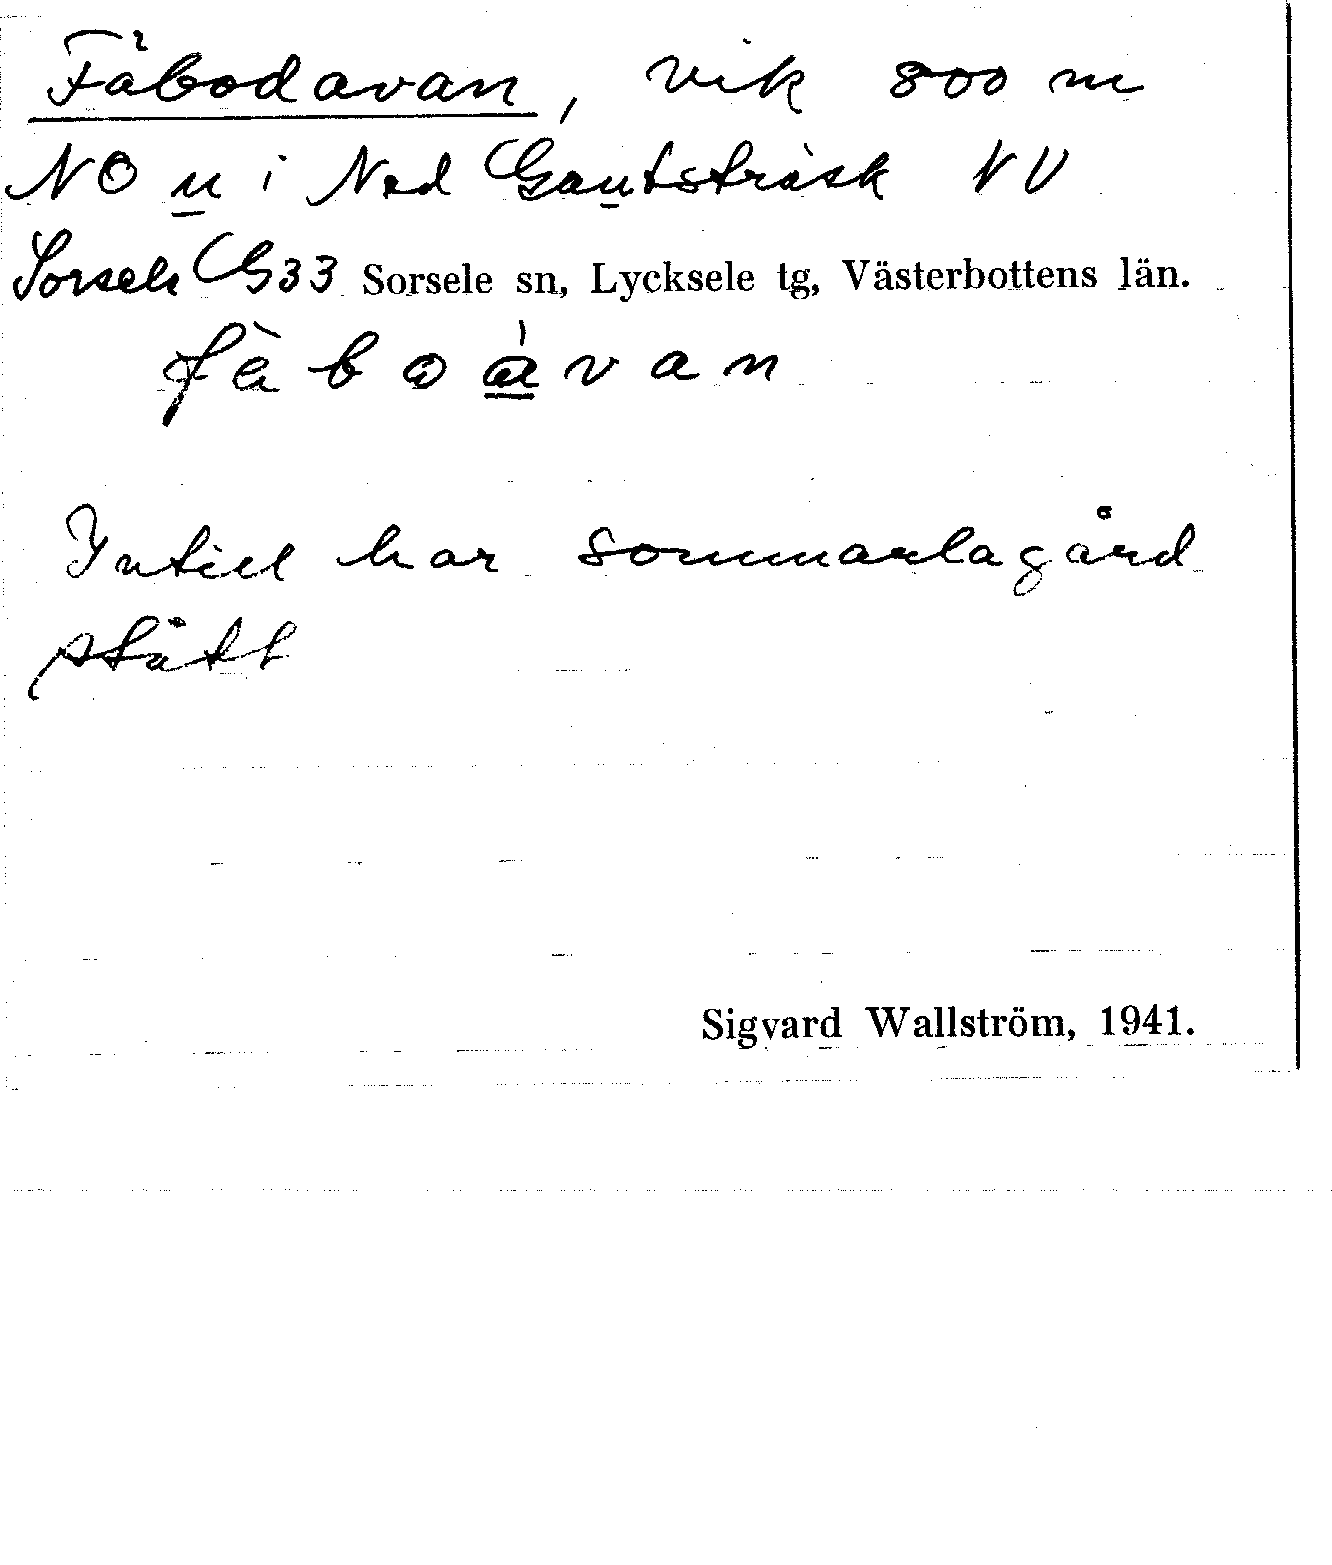 Fäbodavan, vik 800 m
NO u i Ned Gautsträsk NV
Sorsele G33 Sorsele sn, Lycksele tg, Västerbottens län.
fàboávan
Intill har sommarlagård
stått
Sigvard Wallström, 1941.